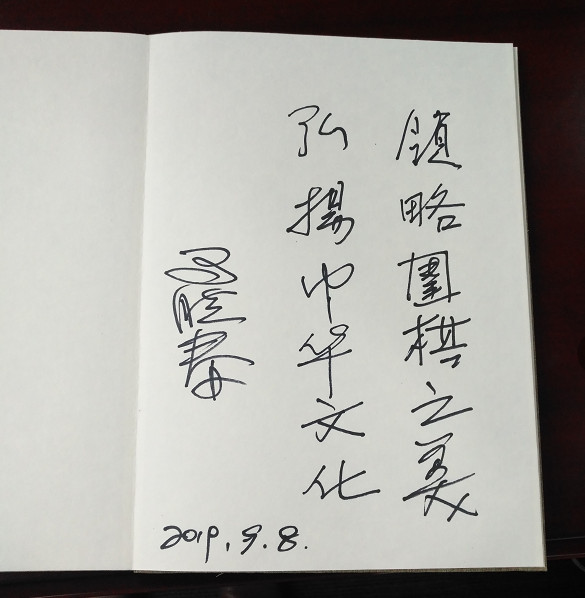 領略圍棋之美
弘揚中华文化
马晓春
2019.9.8.